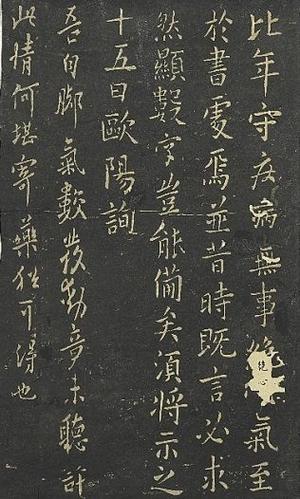 比年守疾病無事氣至
於書處焉並昔時既言必求
然顯數字豈能備矣須將示之
十五日歐陽詢
吾自脚氣數發動竟未聽許
此情何堪寄藥猶可得也